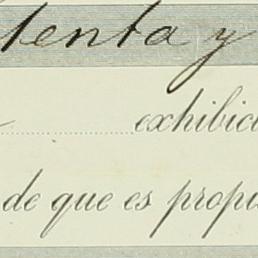 tenta y
exhibic
de que es propi